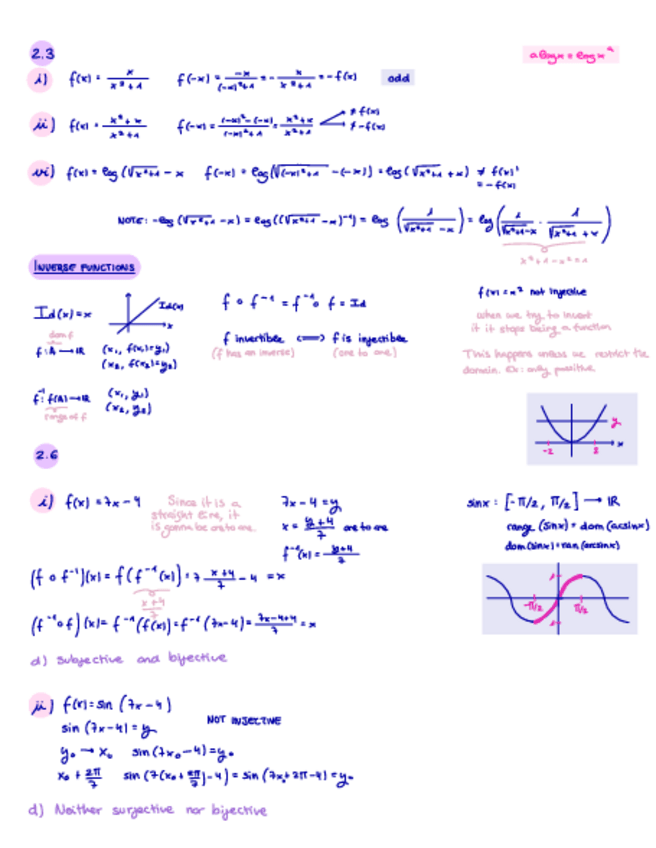 2.3
a log x = log xᵃ
i) f(x) = x/(x²+1) f(-x) = -x/((-x)²+1) = - x/(x²+1) = -f(x) odd
ii) f(x) = (x²+x)/(x²+1) f(-x) = ((-x)²-(-x))/((-x)²+1) = (x²+x)/(x²+1) ≠ f(x)
≠ -f(x)
vi) f(x) = log (√(x²+1) - x f(-x) = log (√((-x)²+1) - (-x)) = log (√(x²+1) + x) ≠ f(x)!
= -f(x)
NOTE: -log (√(x²+1) - x) = log ((√(x²+1) - x)⁻¹) = log (1/(√(x²+1) - x)) = log (1/(√(x²+1) - x) · 1/(√(x²+1) + x))
x²+1-x²=1
INVERSE FUNCTIONS
Id(x) = x
Id(x)
x
f ∘ f⁻¹ = f⁻¹ ∘ f = Id
f(x) = x² not injective
when we try to invert
it it stops being a function
dom f
f: A → ℝ (x₁, f(x₁)=y₁)
(x₂, f(x₂)=y₂)
f invertible ⟺ f is injectible
(f has an inverse) (one to one)
This happens unless we restrict the
domain. Ex: only positive
f⁻¹: f(A) → ℝ (x₁, y₁)
(x₂, y₂)
range of f
y
x
-2 2
2.6
i) f(x) = 7x - 4
Since it is a
straight line, it
is gonna be one to one
7x - 4 = y
x = (y+4)/7 one to one
f⁻¹(x) = (y+4)/7
sinx : [-π/2, π/2] → ℝ
range (sinx) = dom (arcsinx)
dom (sinx) = ran (arcsinx)
(f ∘ f⁻¹)(x) = f(f⁻¹(x)) = 7 (x+4)/7 - 4 = x
(x+4)/7
-π/2 π/2
(f⁻¹ ∘ f)(x) = f⁻¹(f(x)) = f⁻¹(7x-4) = (7x-4+4)/7 = x
d) Subjective and bijective
ii) f(x) = sin (7x - 4)
sin (7x - 4) = y
NOT INJECTIVE
y₀ → x₀ sin (7x₀ - 4) = y₀
x₀ + 2π/7 sin (7(x₀ + 2π/7) - 4) = sin (7x₀ + 2π - 4) = y₀
d) Neither surjective nor bijective